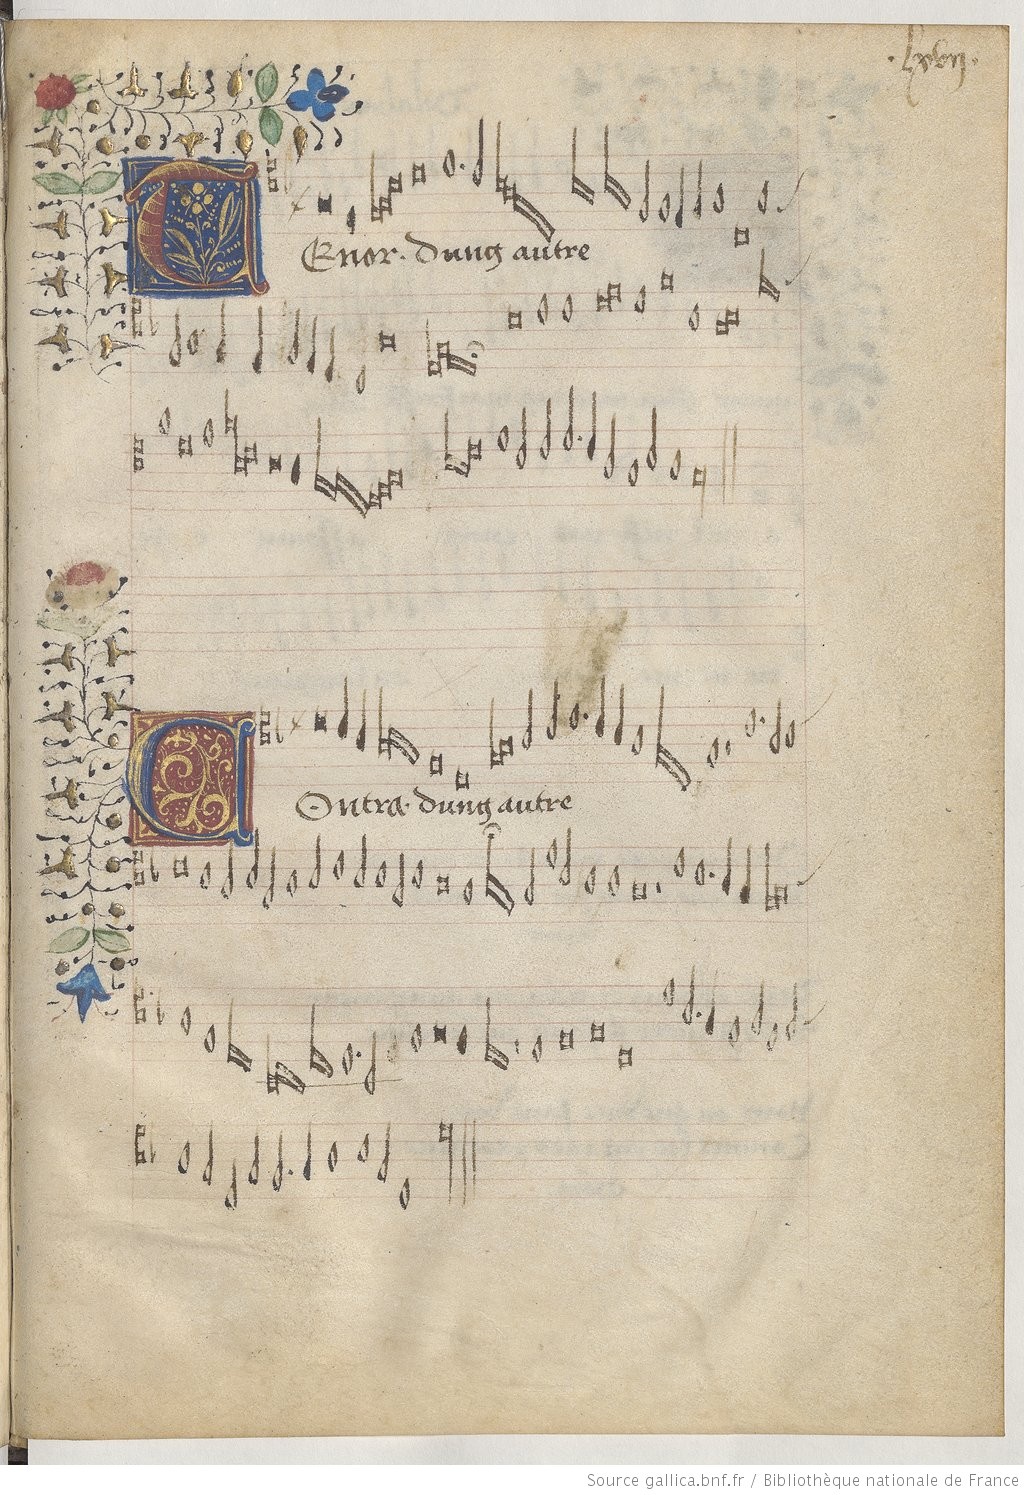 TEnor. dung autre
COntra. dung autre
Source gallica.bnf.fr / Bibliothèque nationale de France